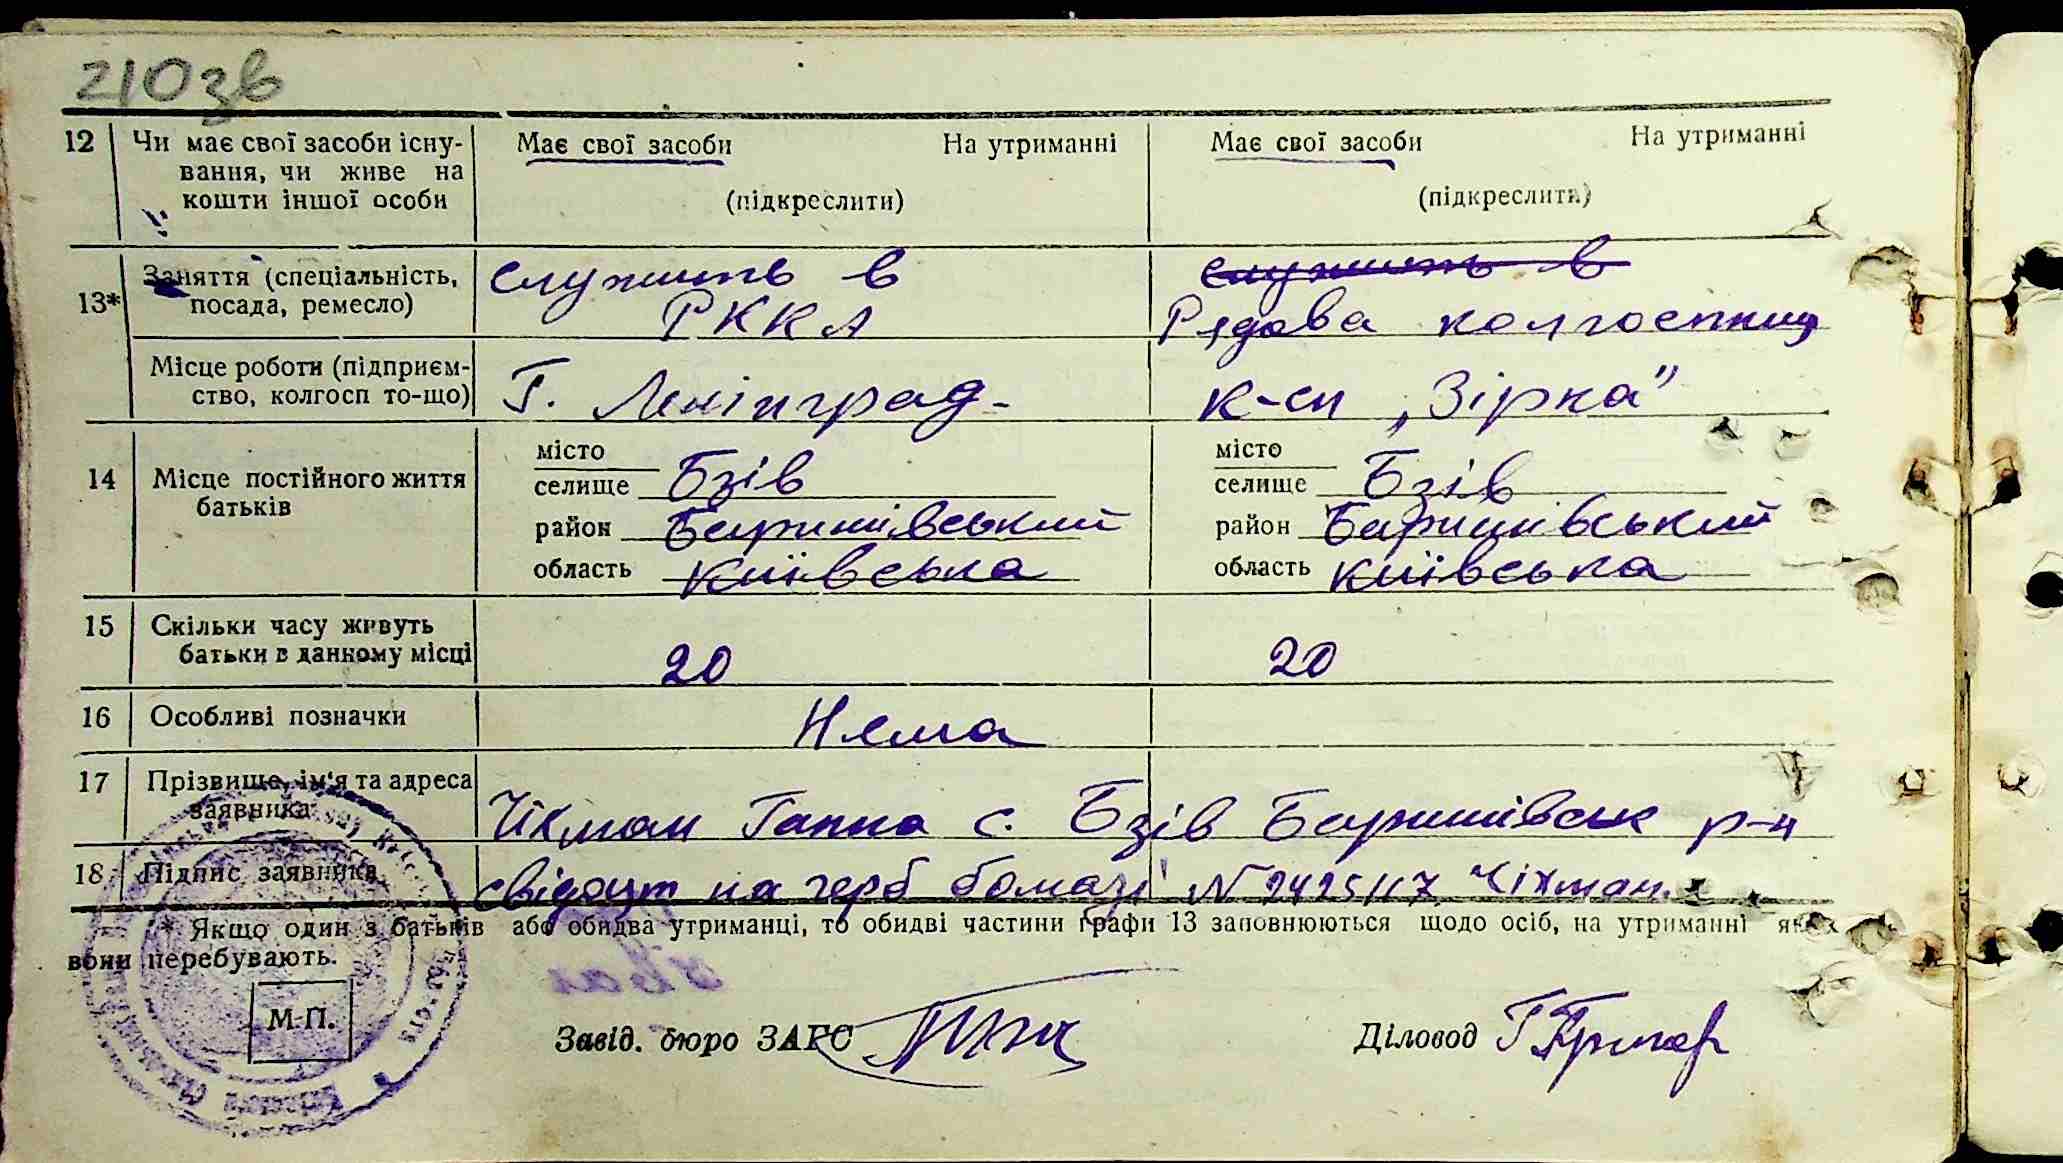 210зв
12 Чи має свої засоби існу- Має свої засоби На утриманні Має свої засоби На утриманні
вання, чи живе на
кошти іншої особи (підкреслити) (підкреслити)
Заняття (спеціальність, служить в служить в
13* посада, ремесло) РККА Рядова колгоспниця
Місце роботи (підприєм- Г. Ленінград- к-сп „Зірка”
ство, колгосп то-що)
місто місто
14 Місце постійного життя селище Бзів селище Бзів
батьків район Баришівський район Баришівський
область київська область київська
15 Скільки часу живуть
батьки в данному місці 20 20
16 Особливі позначки Нема
17 Прізвище, ім'я та адреса
заявника Чіхман Ганна с. Бзів Баришівськ р-н
18 Підпис заявника свідоцт на герб бомазі № 242517 Чіхман.
* Якщо один з батьків або обидва утриманці, то обидві частини графи 13 заповнюються щодо осіб, на утриманні яких
вони перебувають.
М.П.
Завід. бюро ЗАГС Діловод